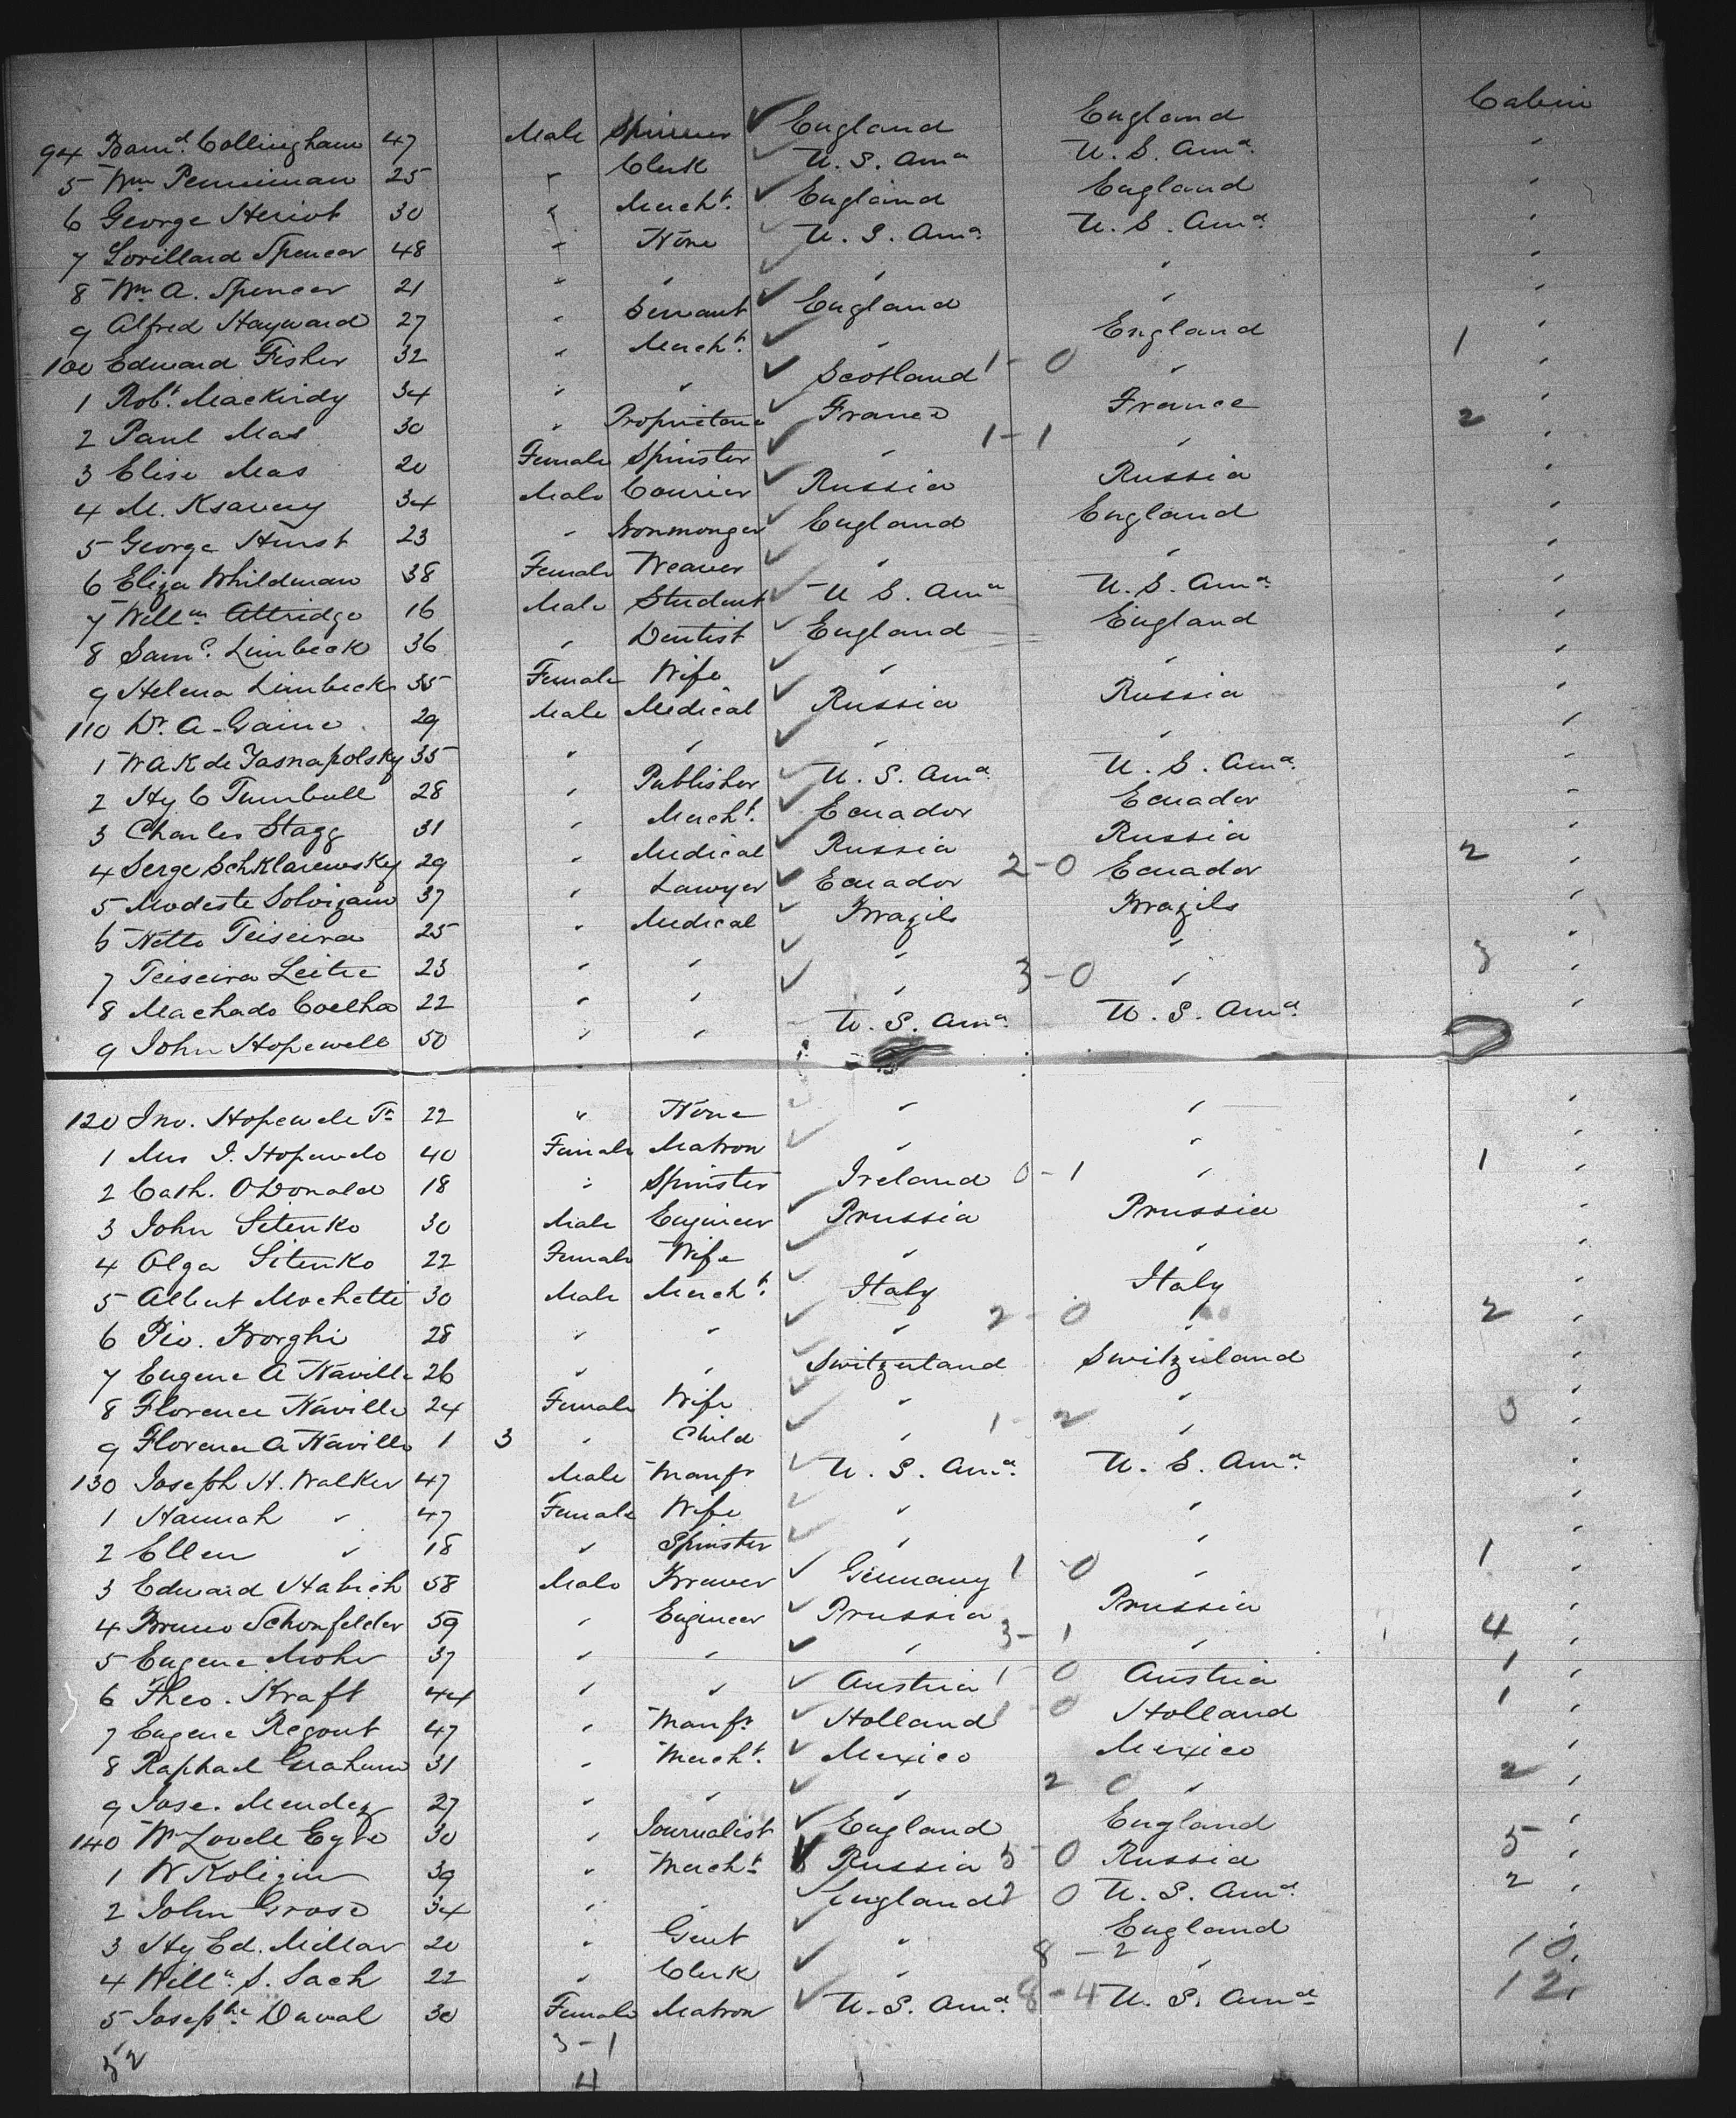 Cabin
94 Bam.d Collingham 47 Male Spinner ✓ England England
5 Wm Penniman 25 " Clerk ✓ U. S. Ama U. S. Ama "
6 George Heriot 30 " Mercht. ✓ England England "
7 Lorillard Spencer 48 " None ✓ U. S. Ama U. S. Ama "
8 Wm A. Spencer 21 " " ✓ " " "
9 Alfred Hayward 27 " Servant ✓ England " "
100 Edward Fisher 32 " Mercht. ✓ " England "
1 Robt. Mackirdy 34 " " ✓ Scotland 1-0 " 1 "
2 Paul Mas 30 " Proprietaire ✓ France France "
3 Elise Mas 20 Female Spinster ✓ " 1-1 " 2 "
4 M. Ksavery 34 Male Courier ✓ Russia Russia "
5 George Hurst 23 " Ironmonger ✓ England England "
6 Eliza Whildman 38 Female Weaver ✓ " " "
7 Willm Attridge 16 Male Student ✓ U S. Ama U. S. Ama "
8 Saml. Limbeck 36 " Dentist ✓ England England "
9 Helena Limbeck 35 Female Wife ✓ " " "
110 Dr. A. Gaine 29 Male Medical ✓ Russia Russia "
1 W A K de Jasnapolsky 35 " " ✓ " " "
2 Hy C Turnbull 28 " Publisher ✓ U. S. Ama U. S. Ama "
3 Charles Stagg 31 " Mercht. ✓ Ecuador Ecuador "
4 Serge Schklarewsky 29 " Medical ✓ Russia Russia "
5 Modeste Solvizano 37 " Lawyer ✓ Ecuador 2-0 Ecuador 2 "
6 Netto Teiseira 25 " Medical ✓ Brazils Brazils "
7 Teiseira Leite 23 " " ✓ " " "
8 Machado Coelho 22 " " ✓ " 3-0 " 3 "
9 John Hopewell 50 " " U. S. Ama U. S. Ama "
120 Jno. Hopewell Jr 22 " None ✓ " " "
1 Mrs J. Hopewell 40 Female Matron ✓ " " "
2 Cath. O'Donald 18 " Spinster Ireland 0-1 " 1 "
3 John Sitenko 30 Male Engineer ✓ Prussia Prussia "
4 Olga Sitenko 22 Female Wife ✓ " " "
5 Albert Mochetti 30 Male Mercht. ✓ Italy Italy "
6 Pio. Borghi 28 " " ✓ " 2-0 " 2 "
7 Eugene A Naville 26 " " ✓ Switzerland Switzerland "
8 Florence Naville 24 Female Wife ✓ " " "
9 Florence A Naville 1 3 " Child ✓ " 1-2 " 3 "
130 Joseph H. Walker 47 Male Manfr ✓ U. S. Ama U. S. Ama "
1 Hannah " 47 Female Wife ✓ " " "
2 Ellen " 18 " Spinster ✓ " " "
3 Edward Habich 58 Male Brewer ✓ Germany 1-0 " 1 "
4 Bruno Schonfelder 59 " Engineer ✓ Prussia Prussia "
5 Eugene Mohr 37 " " ✓ " 3-1 " 4 "
6 Theo. Kraft 44 " " ✓ Austria 1-0 Austria 1 "
7 Eugene Regout 47 " Manfr ✓ Holland 1-0 Holland 1 "
8 Raphael Graham 31 " Mercht. ✓ Mexico Mexico "
9 Jose. Mendez 27 " " ✓ " 2 0 " 2 "
140 Wm Lovell Eyre 30 " Journalist ✓ England England "
1 W Koligin 39 " Mercht ✓ Russia 5-0 Russia 5 "
2 John Grose 34 " " ✓ England 2 0 U. S. Ama 2 "
3 Hy Ed. Millar 20 " Gent ✓ " England "
4 Willm. S. Sach 22 " Clerk ✓ " 8-2 " 10 "
5 Josephne Duval 30 Female Matron ✓ U. S. Ama 8-4 U. S. Ama 12 "
3-1
52
4